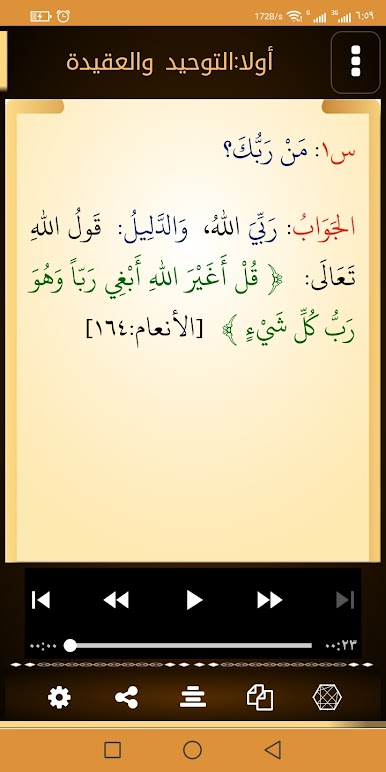 172B/s G 3G ٦:٥٩
أولا:التوحيد والعقيدة
س١: مَنْ رَبُّكَ؟
الجَوَابُ: رَبِّيَ اللهُ، وَالدَّلِيلُ: قَولُ اللهِ
تَعَالَى: ﴿ قُلْ أَغَيْرَ اللهِ أَبْغِي رَبّاً وَهُوَ
رَبُّ كُلِّ شَيْءٍ ﴾ [الأنعام:١٦٤]
٠٠:٠٠ ٠٠:٢٣